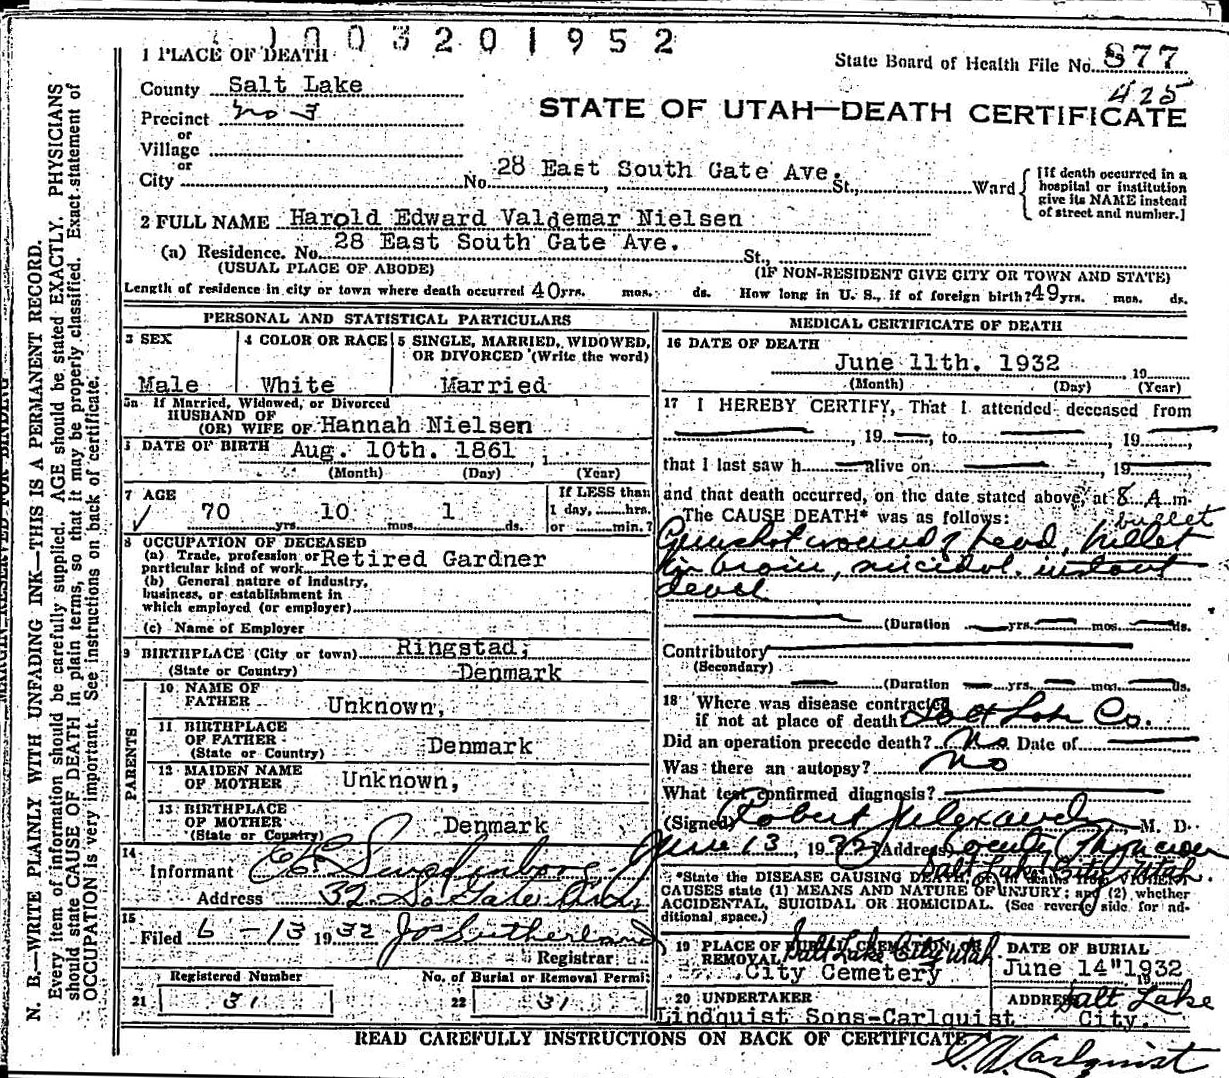 1003201952
1 PLACE OF DEATH
State Board of Health File No. 877
County Salt Lake
425
STATE OF UTAH—DEATH CERTIFICATE
Precinct No 3
or
Village
or
City No. 28 East South Gate Ave. St., Ward
[If death occurred in a hospital or institution give its NAME instead of street and number.]
2 FULL NAME Harold Edward Valdemar Nielsen
(a) Residence. No. 28 East South Gate Ave. St.,
(USUAL PLACE OF ABODE) (IF NON-RESIDENT GIVE CITY OR TOWN AND STATE)
Length of residence in city or town where death occurred 40 yrs. mos. ds. How long in U. S., if of foreign birth? 49 yrs. mos. ds.
PERSONAL AND STATISTICAL PARTICULARS
3 SEX
Male
4 COLOR OR RACE
White
5 SINGLE, MARRIED, WIDOWED,
OR DIVORCED (Write the word)
Married
5a If Married, Widowed, or Divorced
HUSBAND OF
(OR) WIFE OF Hannah Nielsen
6 DATE OF BIRTH Aug. 10th. 1861, 1
(Month) (Day) (Year)
7 AGE
70 yrs. 10 mos. 1 ds.
If LESS than
1 day, hrs.
or min.?
8 OCCUPATION OF DECEASED
(a) Trade, profession or
particular kind of work Retired Gardner
(b) General nature of industry,
business, or establishment in
which employed (or employer)
(c) Name of Employer
9 BIRTHPLACE (City or town) Ringstad;
(State or Country) Denmark
PARENTS
10 NAME OF
FATHER Unknown,
11 BIRTHPLACE
OF FATHER
(State or Country) Denmark
12 MAIDEN NAME
OF MOTHER Unknown,
13 BIRTHPLACE
OF MOTHER
(State or Country) Denmark
14
Informant
Address 32 So Gate Ave
15
Filed 6-13 1932 Jos Sutherland
Registrar
Registered Number
21 31
No. of Burial or Removal Permit
22 31
MEDICAL CERTIFICATE OF DEATH
16 DATE OF DEATH
June 11th. 1932 19
(Month) (Day) (Year)
17 I HEREBY CERTIFY, That I attended deceased from
, 19 , to , 19 ,
that I last saw h alive on , 19
and that death occurred, on the date stated above, at 8 A m.
The CAUSE DEATH* was as follows: bullet
Gunshot wound of head, bullet
in brain, suicidal. instant
death
(Duration yrs. mos. ds.
Contributory
(Secondary)
(Duration yrs. mos. ds.
18 Where was disease contracted
if not at place of death Salt Lake Co.
Did an operation precede death? No Date of
Was there an autopsy? No
What test confirmed diagnosis?
(Signed) Robert J Alexander M. D.
June 13, 1932 (Address) County Physician
Salt Lake City Utah.
*State the DISEASE CAUSING DEATH,
CAUSES state (1) MEANS AND NATURE OF INJURY; and (2) whether
ACCIDENTAL, SUICIDAL OR HOMICIDAL. (See reverse side for ad-
ditional space.)
19 PLACE OF BURIAL, CREMATION OR
REMOVAL Salt Lake City Utah
City Cemetery
DATE OF BURIAL
June 14" 1932
19
20 UNDERTAKER
Lindquist Sons-Carlquist
ADDRESS Salt Lake
City.
READ CAREFULLY INSTRUCTIONS ON BACK OF CERTIFICATE
Carlquist
MARGIN RESERVED FOR BINDING
N. B.—WRITE PLAINLY WITH UNFADING INK—THIS IS A PERMANENT RECORD.
Every item of information should be carefully supplied. AGE should be stated EXACTLY. PHYSICIANS
should state CAUSE OF DEATH in plain terms, so that it may be properly classified. Exact statement of
OCCUPATION is very important. See instructions on back of certificate.